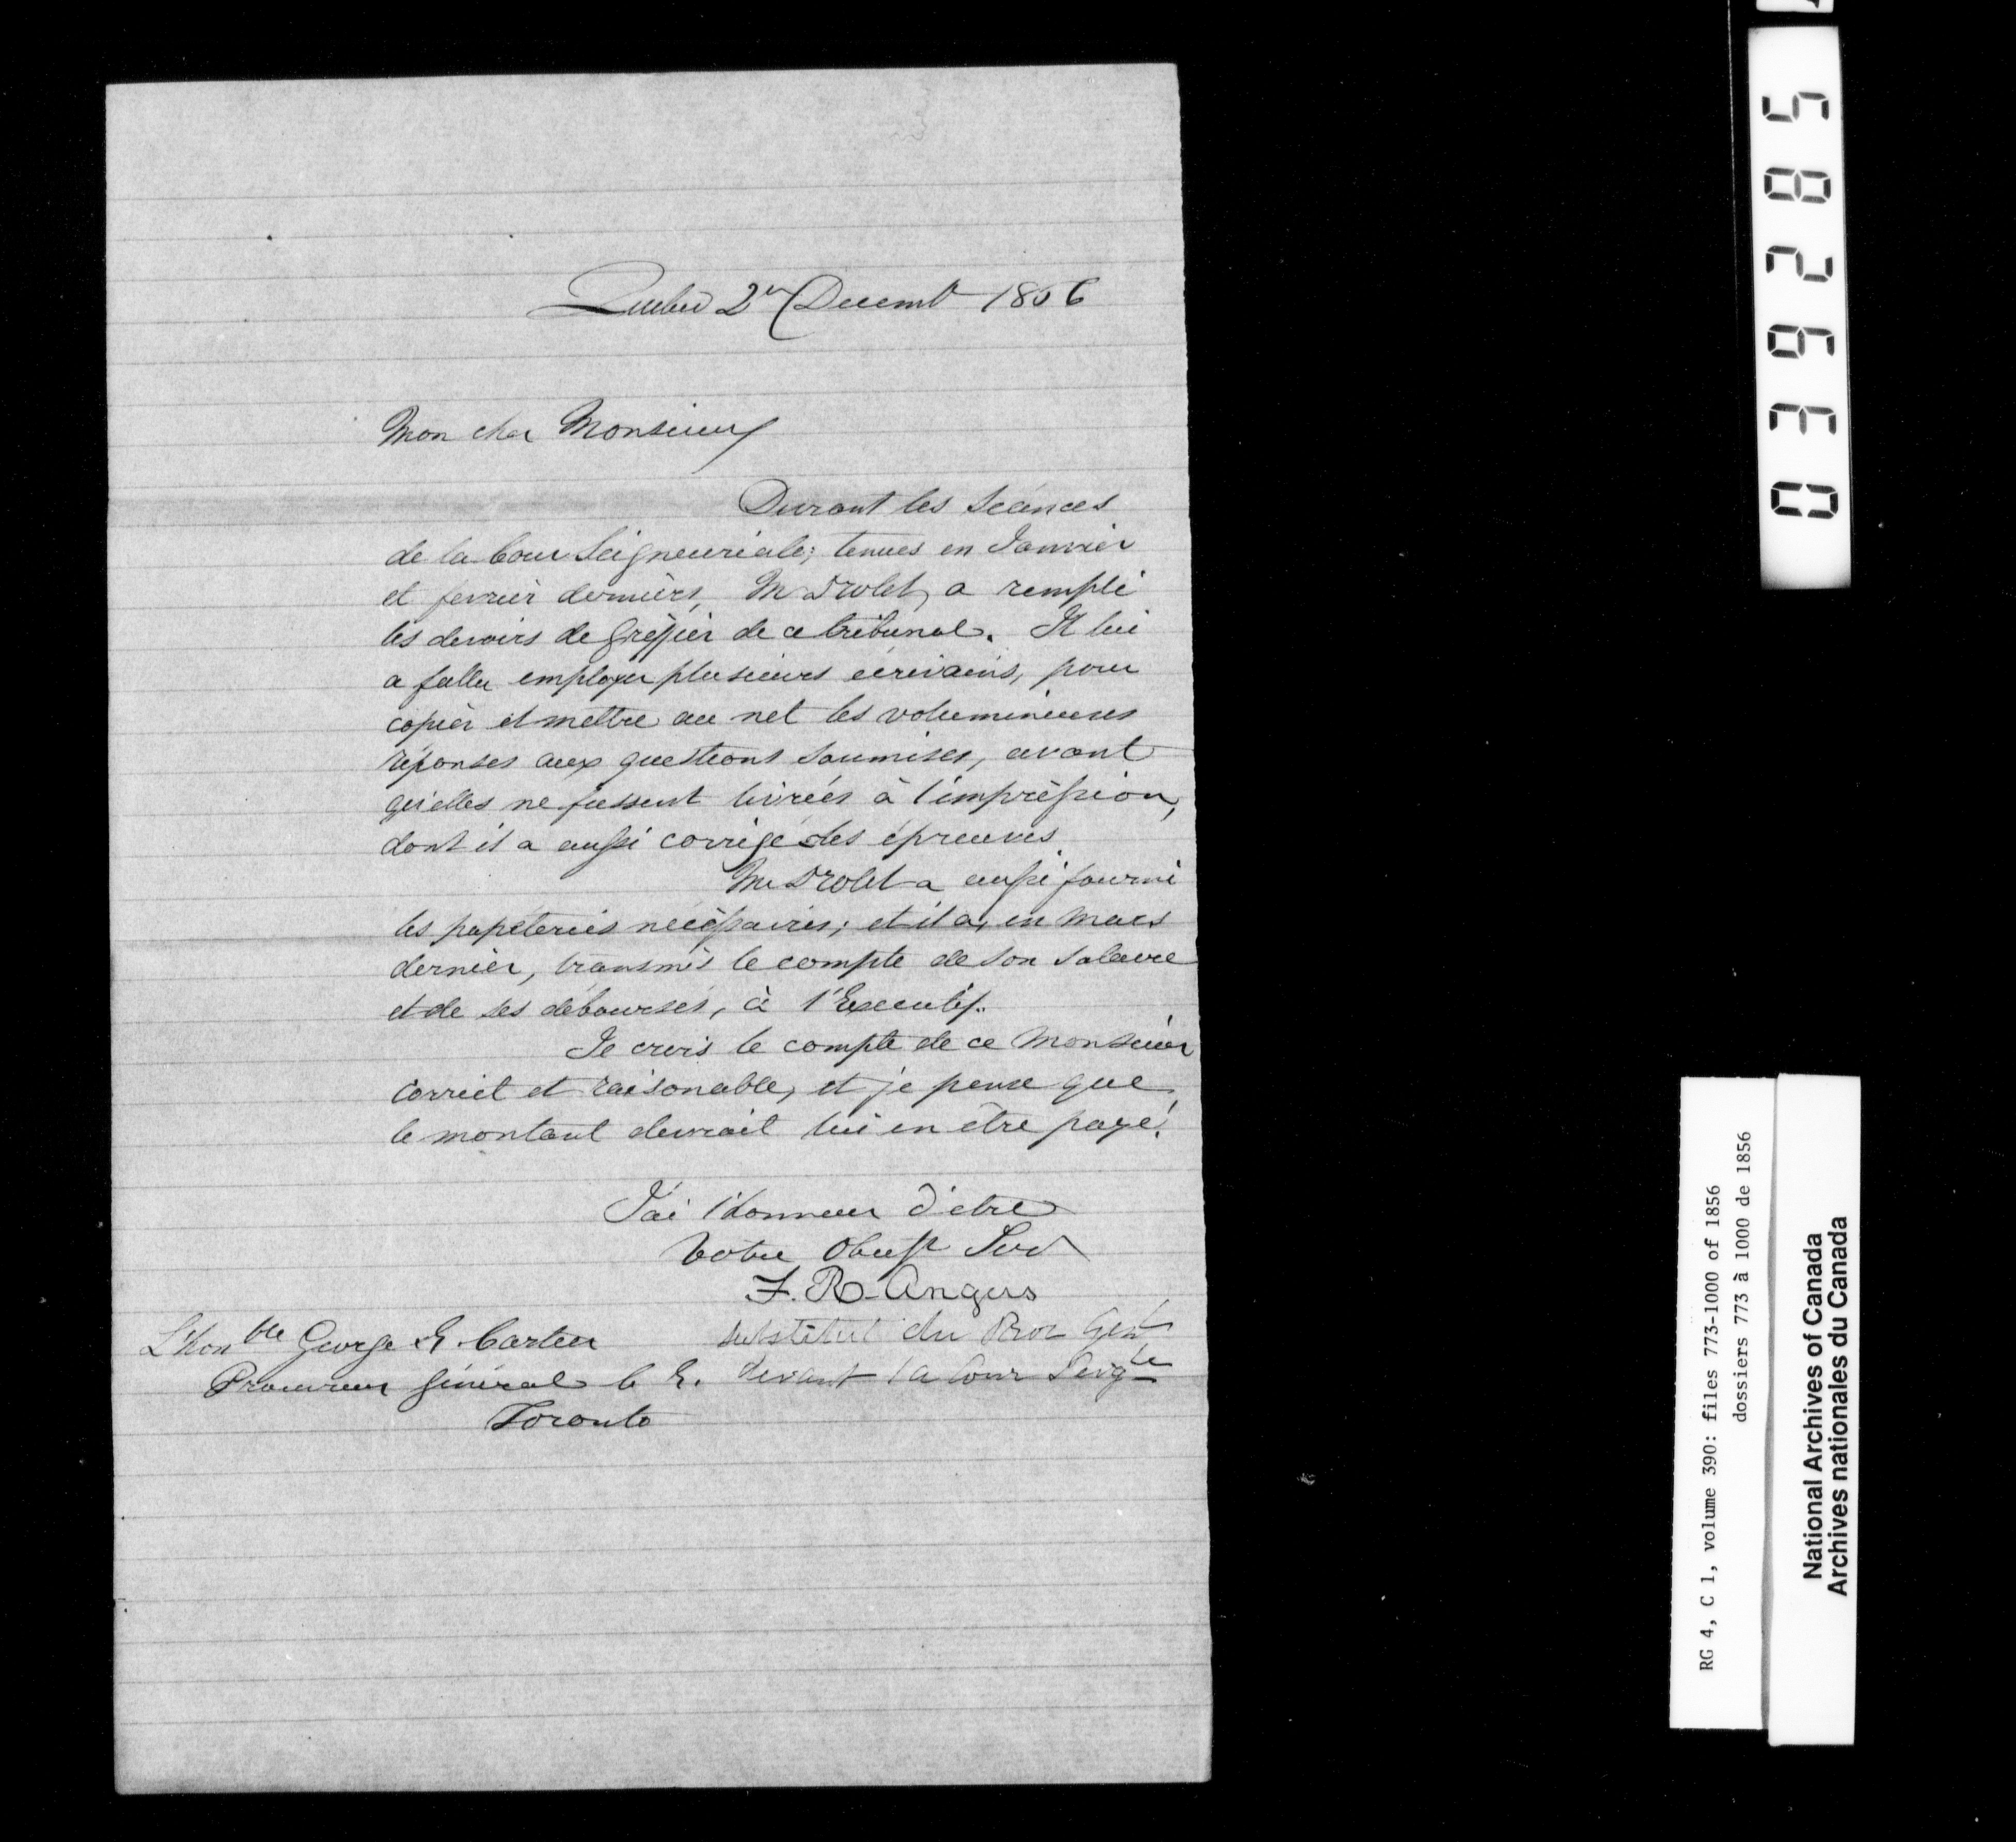 Quebec 2 Decembr 1856
Mon cher Monsieur
Durant les séances
de la Cour Seigneuriale; tenues en Janvier
et fevrier derniers, Mr Drolet, a rempli
les devoirs de Greffier de ce tribunal. Il lui
a fallu employer plusieurs écrivains, pour
copier et mettre au net les volumineuses
réponses aux questions soumises, avant
qu'elles ne fussent livrées à l'impression,
dont il a aussi corrigé les épreuves.
Mr Drolet a aussi fourni
les papéteries nécéssaires; et il a, en Mars
dernier, transmis le compte de son salaire
et de ses déboursés, à l'Executif.
Je crois le compte de ce Monsieur
correct et raisonable, et je pense que
le montant devrait lui en être payé.
J'ai l'honneur d'etre
Votre Obeisst Serv
F. R. Angers
substitut du Proc Genl
devant la Cour Seigle
L'Honble George E Cartier
Procureur général b E.
Toronto
039285
RG 4, C 1, volume 390: files 773-1000 of 1856
dossiers 773 à 1000 de 1856
National Archives of Canada
Archives nationales du Canada